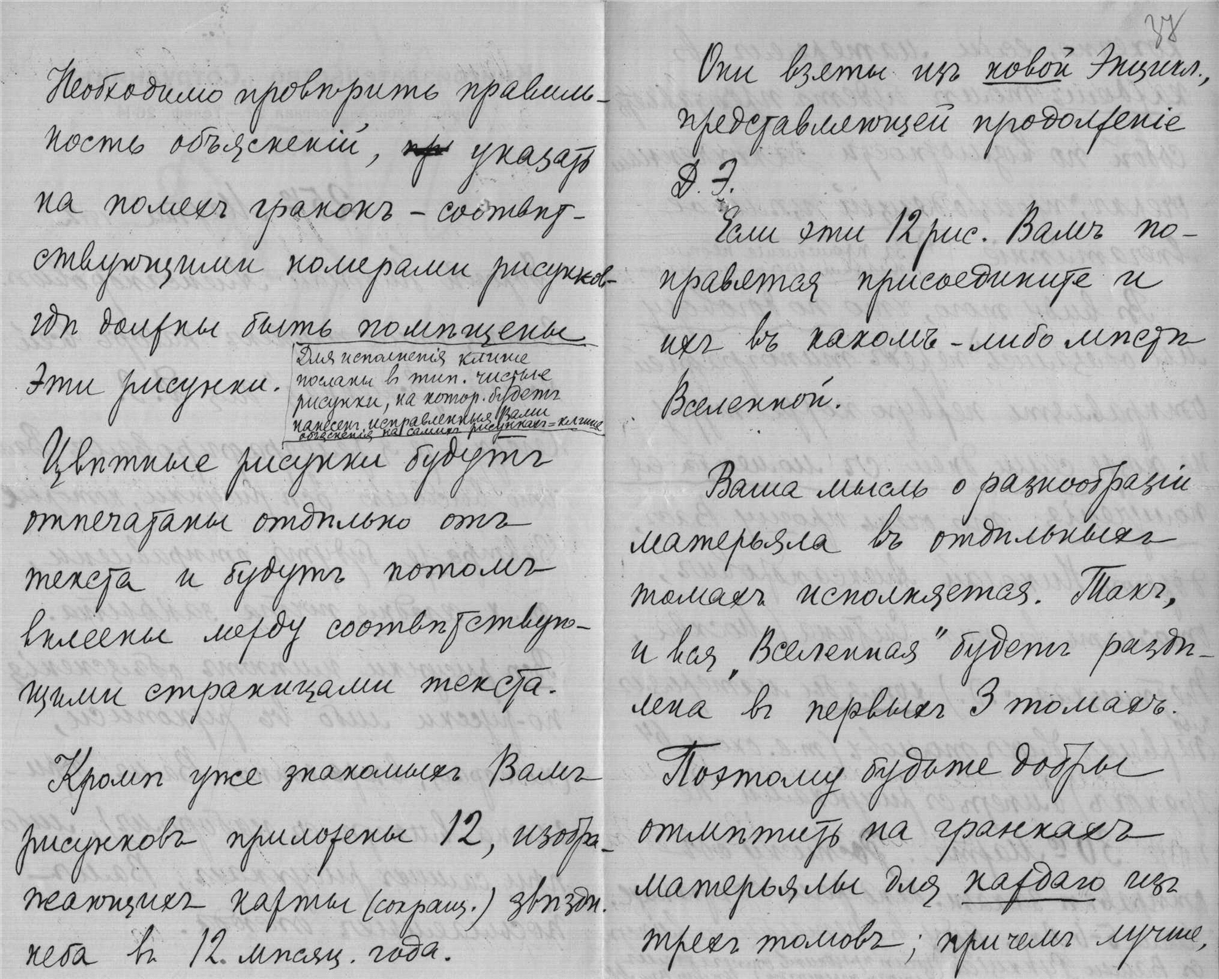 Необходимо провѣрить правиль-
ность объясненій, указать
на поляхъ гранокъ – соотвѣт-
ствующими номерами рисунков-
гдѣ должны быть помѣщены
Эти рисунки.
Для исполненія клише
посланы в тип. чистые
рисунки, на котор. будетъ
нанесен. исправленныя Вами
объясненія на самихъ рисункахъ-клише
Цвѣтные рисунки будутъ
отпечатаны отдѣльно отъ
текста и будутъ потомъ
вклеены между соотвѣтствую-
щими страницами текста.
Кромѣ уже знакомыхъ Вамъ
рисунковъ приложены 12, изобра-
жающихъ карты (сокращ.) звѣздн.
неба въ 12. мѣсяц. года.
38
Они взяты изъ новой Энцикл.,
представляющей продолженіе
Д. Э.
Если эти 12 рис. Вамъ по-
нравятся присоедините и
ихъ въ какомъ-либо мѣстѣ
Вселенной.
Ваша мысль о разнообразіи
матерьяла въ отдѣльныхъ
томахъ исполняется. Такъ,
и вся „Вселенная" будетъ раздѣ-
лена въ первыхъ 3 томахъ.
Поэтому будьте добры
отмѣтить на гранкахъ
матерьялы для каждаго изъ
трехъ томовъ; причемъ лучше,